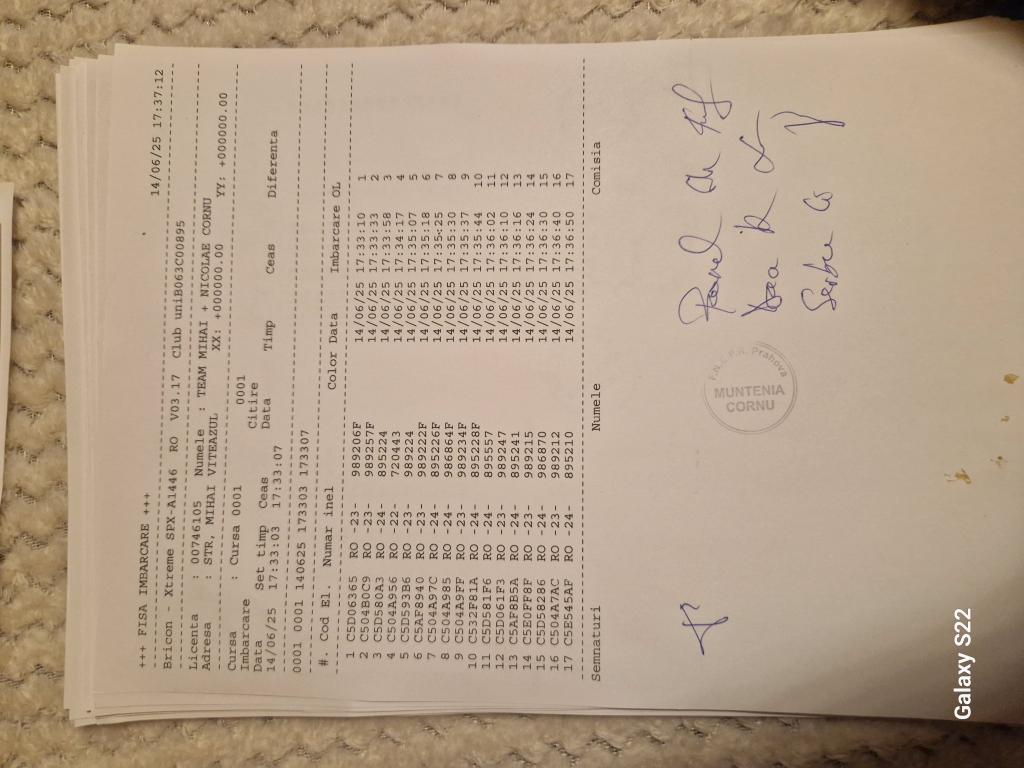 +++ FISA IMBARCARE +++ 14/06/25 17:37:12
Bricon - Xtreme SPX-A1446 RO V03.17 Club uniB063C00895
Licenta : 00746105 Numele : TEAM MIHAI + NICOLAE CORNU
Adresa : STR, MIHAI VITEAZUL XX: +000000.00 YY: +000000.00
Cursa : Cursa 0001 0001
Imbarcare Citire
Data Set timp Ceas Data Timp Ceas Diferenta
14/06/25 17:33:03 17:33:07
0001 0001 140625 173303 173307
#. Cod El. Numar inel Color Data Imbarcare OL
1 C5D06365 RO -23- 989206F 14/06/25 17:33:10 1
2 C504B0C9 RO -23- 989257F 14/06/25 17:33:33 2
3 C5D580A3 RO -24- 895224 14/06/25 17:33:58 3
4 C504A956 RO -22- 720443 14/06/25 17:34:17 4
5 C5D593B6 RO -23- 989224 14/06/25 17:35:07 5
6 C5AF8940 RO -23- 989222F 14/06/25 17:35:18 6
7 C504A97C RO -24- 895226F 14/06/25 17:35:25 7
8 C504A985 RO -24- 986864F 14/06/25 17:35:30 8
9 C504A9FF RO -23- 989234F 14/06/25 17:35:37 9
10 C532F81A RO -24- 895228F 14/06/25 17:35:44 10
11 C5D581F6 RO -24- 895557 14/06/25 17:36:02 11
12 C5D061F3 RO -23- 989247 14/06/25 17:36:10 12
13 C5AF8B5A RO -24- 895241 14/06/25 17:36:16 13
14 C5E0FF8F RO -23- 989215 14/06/25 17:36:24 14
15 C5D58286 RO -24- 986870 14/06/25 17:36:30 15
16 C504A7AC RO -23- 989212 14/06/25 17:36:40 16
17 C5E545AF RO -24- 895210 14/06/25 17:36:50 17
Semnaturi Numele Comisia
Prahova
MUNTENIA
CORNU
Galaxy S22